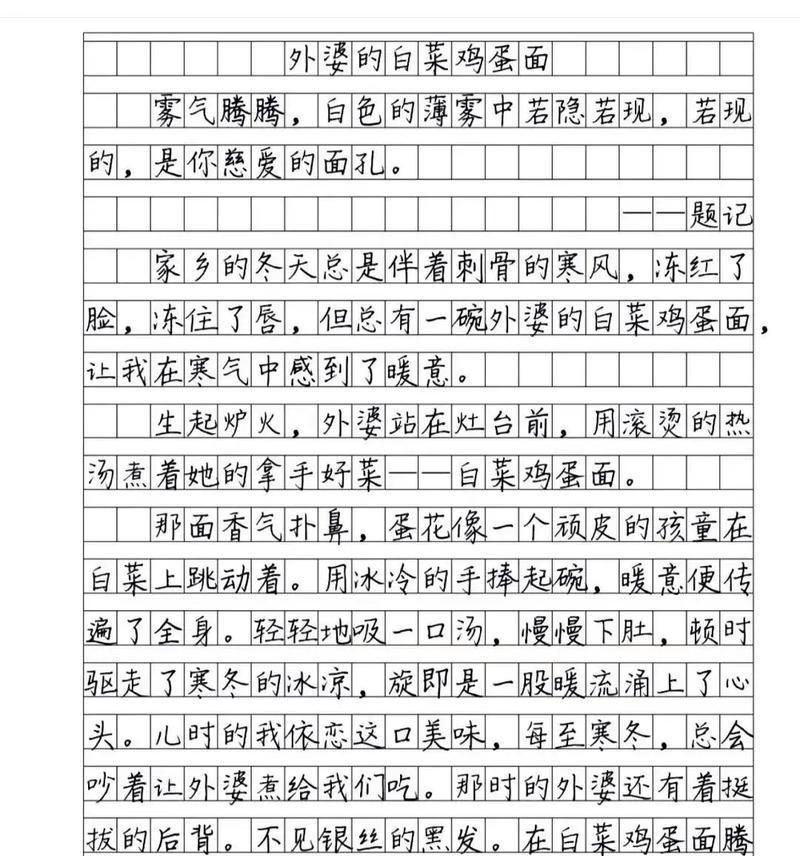 外婆的白菜鸡蛋面
雾气腾腾，白色的薄雾中若隐若现，若现
的，是你慈爱的面孔。
——题记
家乡的冬天总是伴着刺骨的寒风，冻红了
脸，冻住了唇，但总有一碗外婆的白菜鸡蛋面，
让我在寒气中感到了暖意。
生起炉火，外婆站在灶台前，用滚烫的热
汤煮着她的拿手好菜——白菜鸡蛋面。
那面香气扑鼻，蛋花像一个顽皮的孩童在
白菜上跳动着。用冰冷的手捧起碗，暖意便传
遍了全身。轻轻地吸一口汤，慢慢下肚，顿时
驱走了寒冬的冰凉，旋即是一股暖流涌上了心
头。儿时的我依恋这口美味，每至寒冬，总会
吵着让外婆煮给我们吃。那时的外婆还有着挺
拔的后背。不见银丝的黑发。在白菜鸡蛋面腾